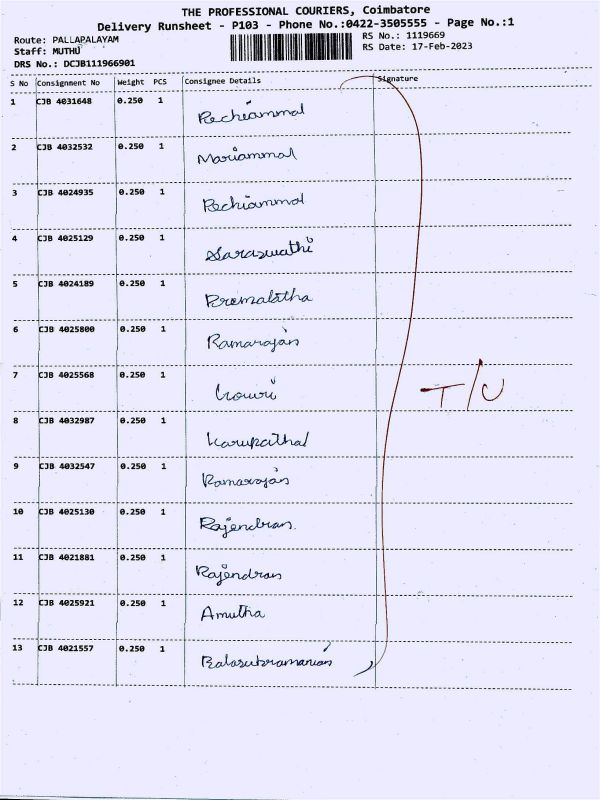 THE PROFESSIONAL COURIERS, Coimbatore
Delivery Runsheet - P103 - Phone No.:0422-3505555 - Page No.:1
Route: PALLAPALAYAM RS No.: 1119669
Staff: MUTHU RS Date: 17-Feb-2023
DRS No.: DCJB111966901
S No Consignment No Weight PCS Consignee Details Signature
1 CJB 4031648 0.250 1 Pechiammal
2 CJB 4032532 0.250 1 Mariammal
3 CJB 4024935 0.250 1 Pechiammal
4 CJB 4025129 0.250 1 Saraswathi
5 CJB 4024189 0.250 1 Premalatha
6 CJB 4025800 0.250 1 Ramarajan
7 CJB 4025568 0.250 1 Gowri
T/C
8 CJB 4032987 0.250 1 Karupathal
9 CJB 4032547 0.250 1 Ramarajan
10 CJB 4025130 0.250 1 Rajendran.
11 CJB 4021881 0.250 1 Rajendran
12 CJB 4025921 0.250 1 Amutha
13 CJB 4021557 0.250 1 Balasubramanian